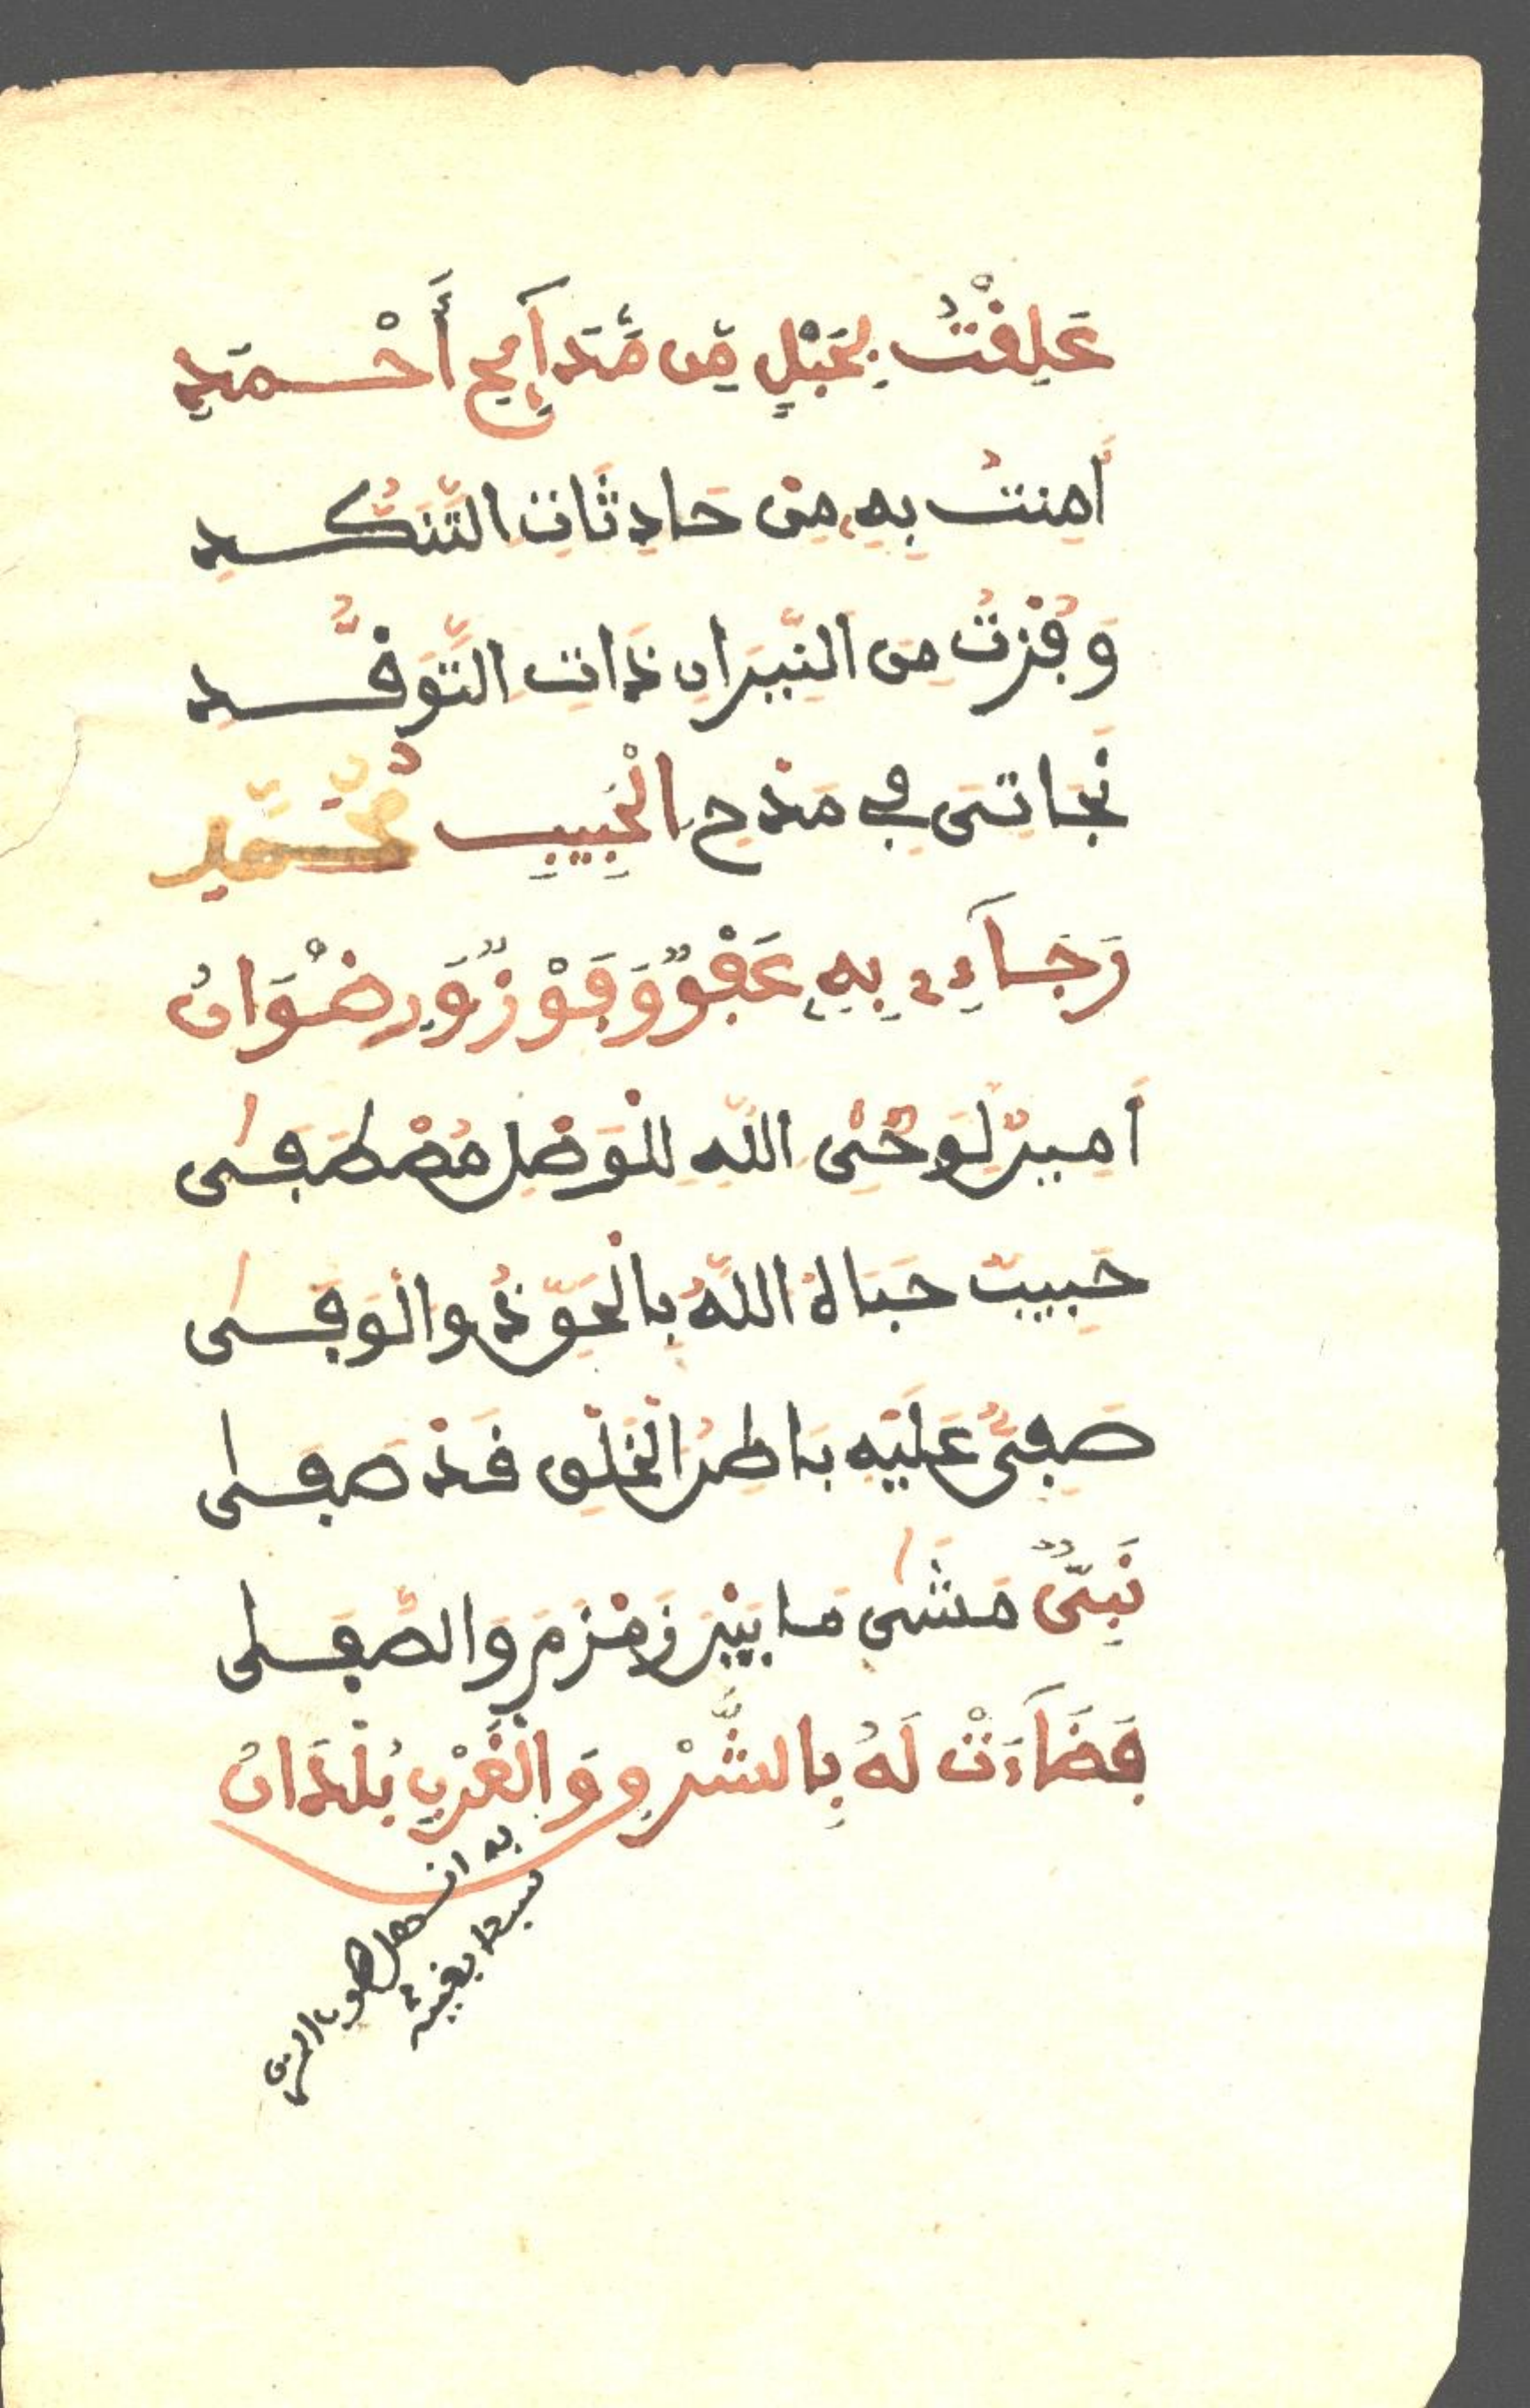 عَلِقْتُ بِحَبْلٍ مِّن مَّدَآئِحِ أَحْمَدِ
أَمِنتُ بِهِ مِنْ حَادِثَاتِ التَّنَكُّدِ
وَفُزْتُ مِنَ النِّيرَانِ ذَاتِ التَّوَقُّدِ
نَجَاتِي فِي مَدْحِ الْحَبِيبِ مُحَمَّدِ
رَجَآءِي بِهِ عَفْوٌ وَفَوْزٌ وَرِضْوَانُ
أَمِينٌ لِوَحْيِ اللَّهِ لِلْوَصْلِ مُصْطَفَى
حَبِيبٌ حَبَاهُ اللَّهُ بِالْجُودِ وَالْوَفَى
صَفِيٌّ عَلَيْهِ بَاطِنُ الْخَلْقِ قَدْ صَفَى
نَبِيٌّ مَشَى مَا بَيْنَ زَمْزَمَ وَالصَّفَى
فَضَآءَتْ لَهُ بِالشَّرْقِ وَالْغَرْبِ بُلْدَانُ